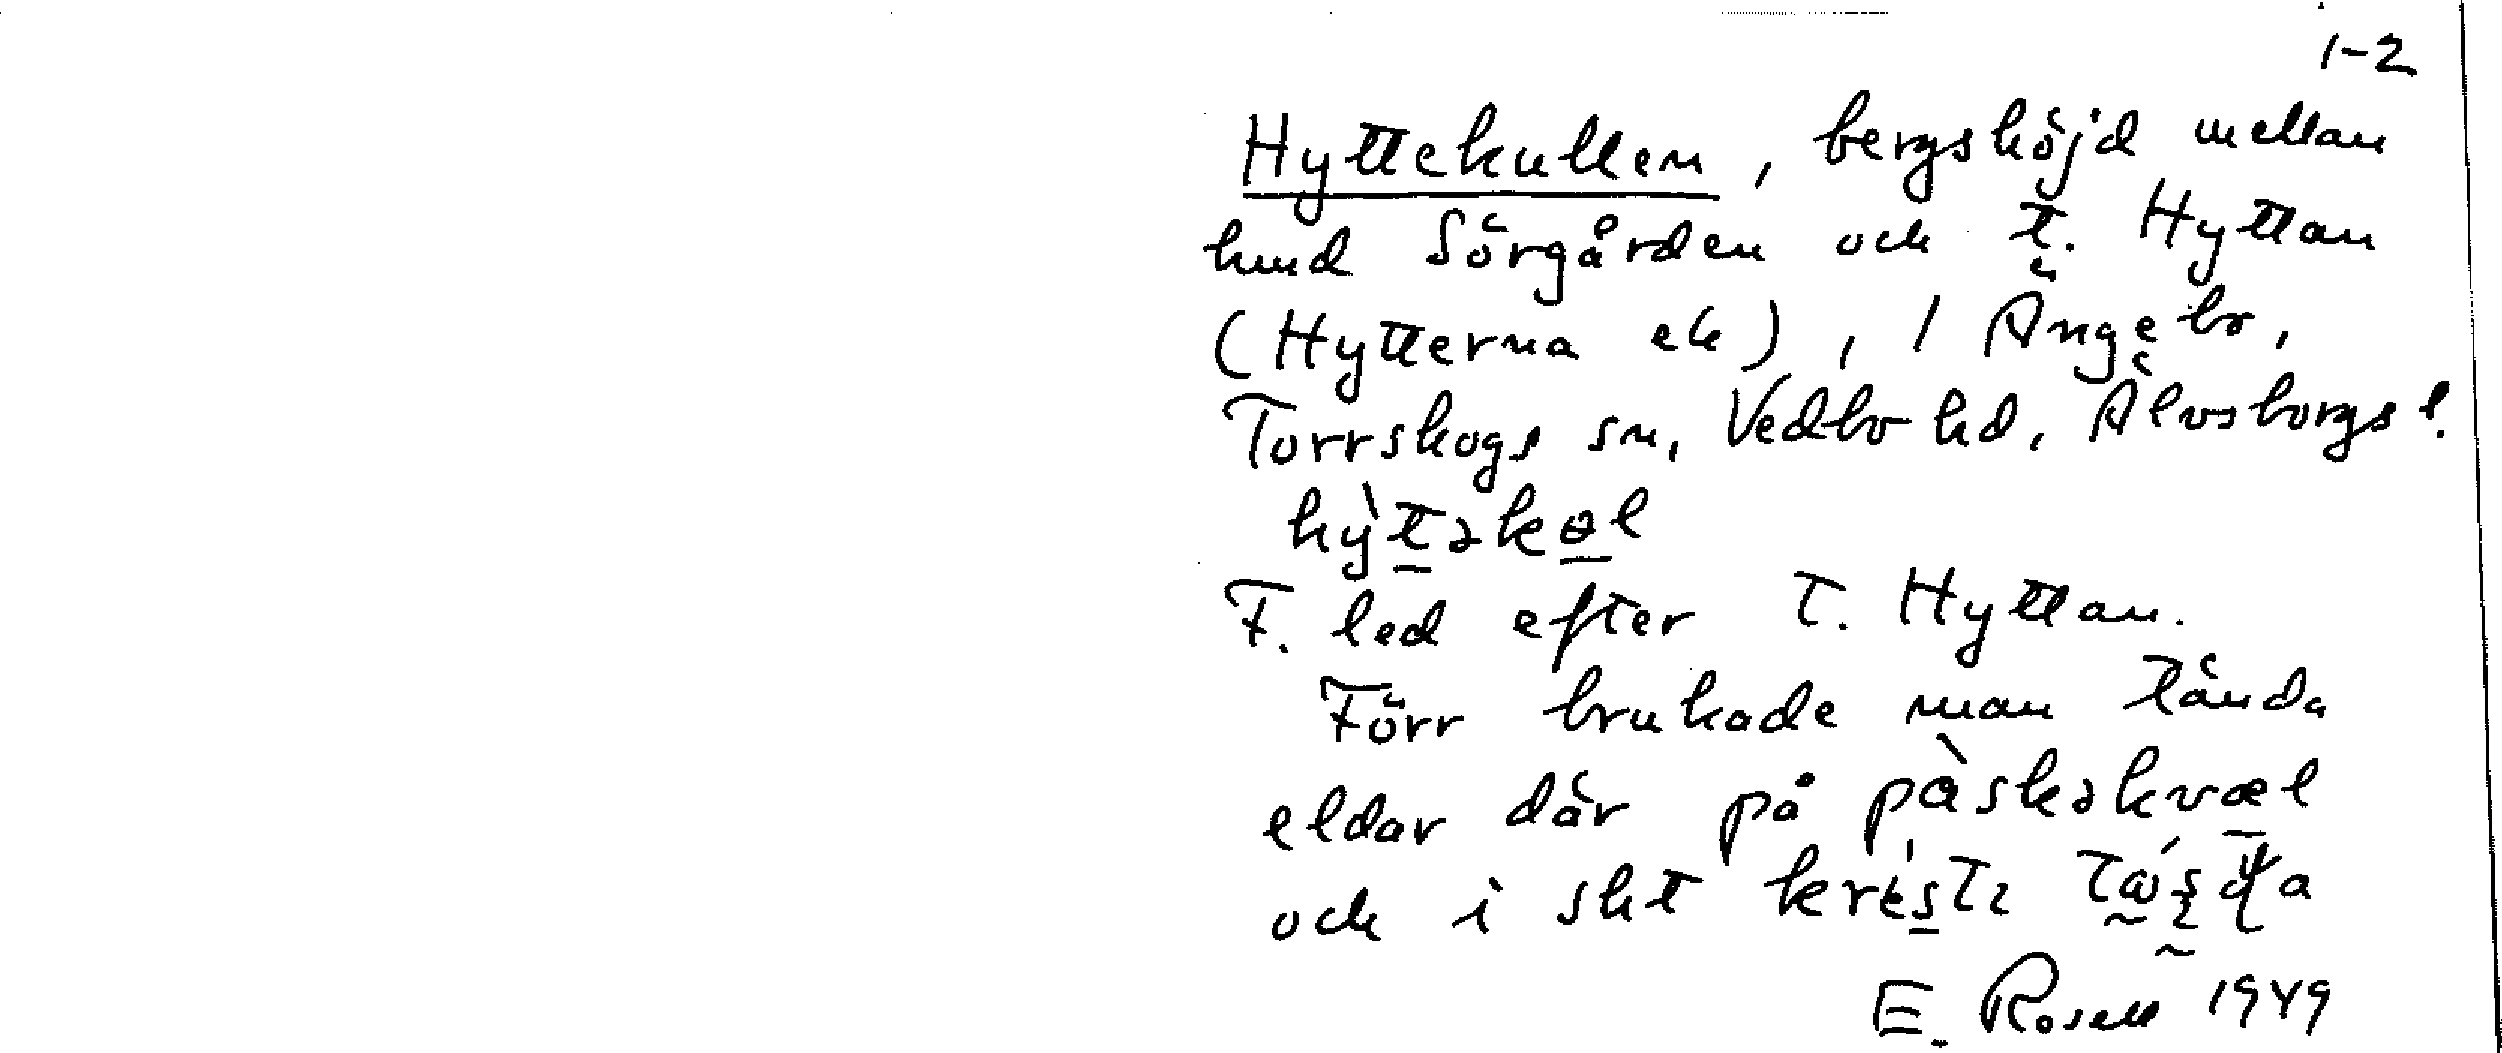 1-2
Hyttekullen, bergshöjd mellan
hmd Sörgården och t. Hyttan
(Hytterna ek), 1 Ängebo,
Torrskogs sn, Vedbo hd, Älvsborgs l.
hỳtəkɵl
F. led efter t. Hyttan.
Förr brukade man tända
eldar där på pàskəkvæl
och i skt
E. Rosell 1949